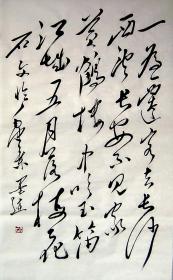 一为迁客去长沙
西望长安不见家
黄鹤楼中吹玉笛
江城五月落梅花